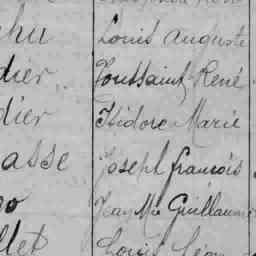 hu Louis Auguste
dier Toussaint René
dier Isidore Marie
asse Joseph françois
Jean Mie Guillaume
llet Louis Léon